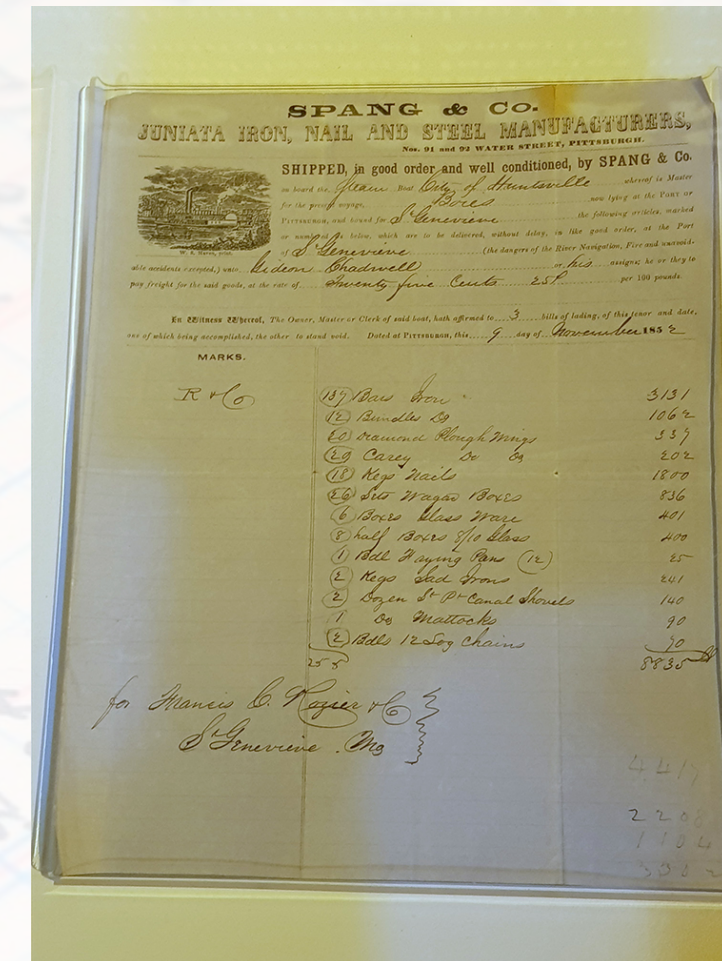 SPANG & CO.
JUNIATA IRON, NAIL AND STEEL MANUFACTURERS,
Nos. 91 and 92 WATER STREET, PITTSBURGH.
SHIPPED, in good order and well conditioned, by SPANG & Co.
on board the Steam Boat City of Huntsville whereof is Master
for the present voyage, Bores now lying at the PORT OF
PITTSBURGH, and bound for St Genevieve the following articles, marked
or numbered as below, which are to be delivered, without delay, in like good order, at the Port
of St Genevieve (the dangers of the River Navigation, Fire and unavoid-
able accidents excepted,) unto Gideon Chadwell or his assigns; he or they to
pay freight for the said goods, at the rate of Twenty five Cents 25¢ per 100 pounds.
In Witness Whereof, The Owner, Master or Clerk of said boat, hath affirmed to 3 bills of lading, of this tenor and date,
one of which being accomplished, the other to stand void. Dated at PITTSBURGH, this 9 day of November 1852
MARKS.
R & Co
137 Bars Iron 3131
12 Bundles Do 1062
20 Diamond Plough Wings 337
20 Carey Do Do 202
18 Kegs Nails 1800
26 Sets Wagan Boxes 836
6 Boxes Glass Ware 401
8 half Boxes 8/10 Glass 400
1 Bdl Frying Pans (12) 25
2 Kegs Sad Irons 241
2 Dozen St Pt Canal Shovels 140
1 Do Mattocks 90
2 Bdls 12 Log Chains 70
255 8835
for Francis C. Rozier & Co
St Genevieve. Mo
4,417
2208
1104